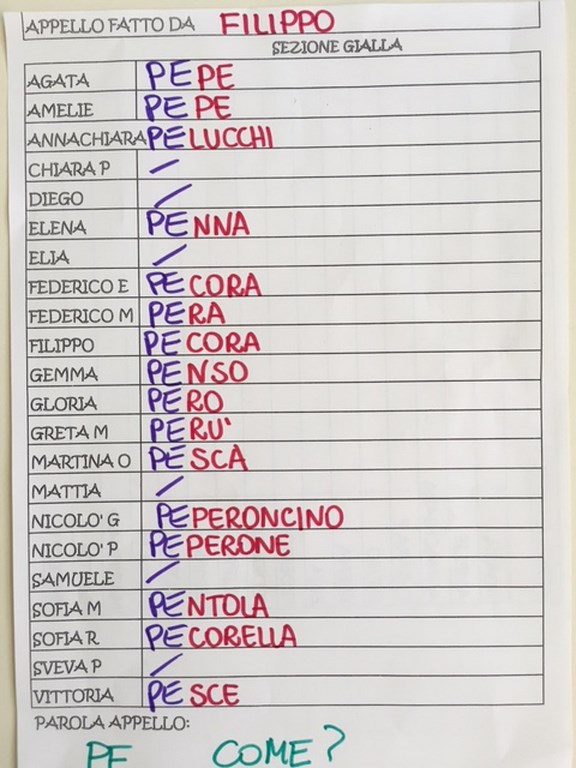 APPELLO FATTO DA FILIPPO
SEZIONE GIALLA
AGATA PEPE
AMELIE PEPE
ANNACHIARA PELUCCHI
CHIARA P /
DIEGO /
ELENA PENNA
ELIA /
FEDERICO E PECORA
FEDERICO M PERA
FILIPPO PECORA
GEMMA PENSO
GLORIA PERO
GRETA M PERU'
MARTINA O PESCA
MATTIA /
NICOLO' G PEPERONCINO
NICOLO' P PEPERONE
SAMUELE /
SOFIA M PENTOLA
SOFIA R PECORELLA
SVEVA P /
VITTORIA PESCE
PAROLA APPELLO:
PE COME?